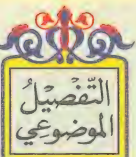 التَّفْصِيْلُ
المَوْضُوعِي